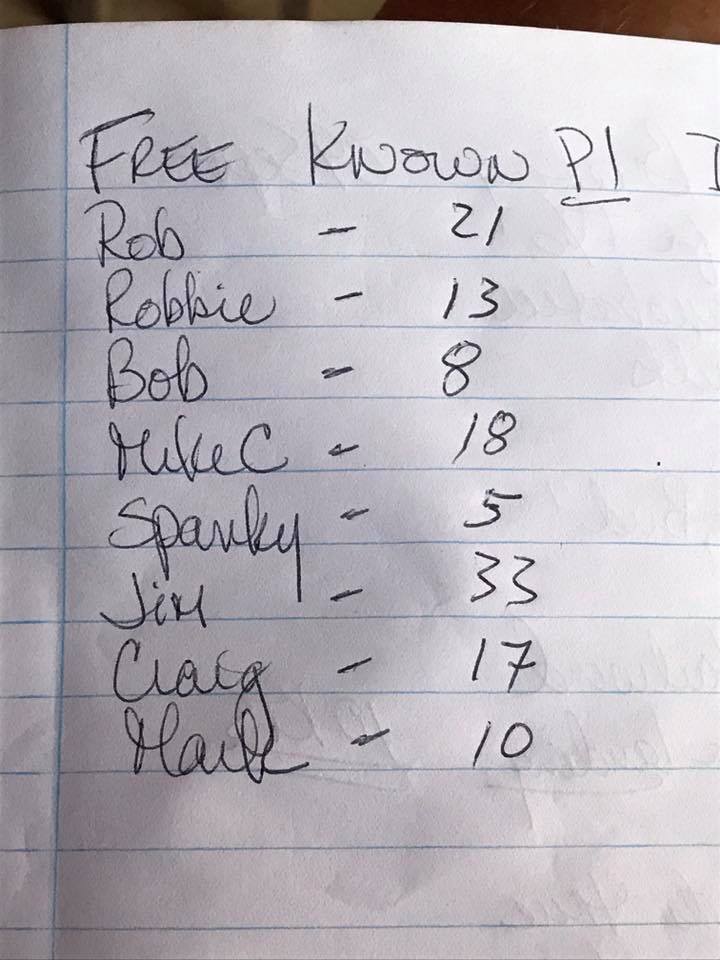 FREE KNOWN P1
Rob - 21
Robbie - 13
Bob - 8
Mike C - 18
Spanky - 5
Jim - 33
Craig - 17
Mark - 10